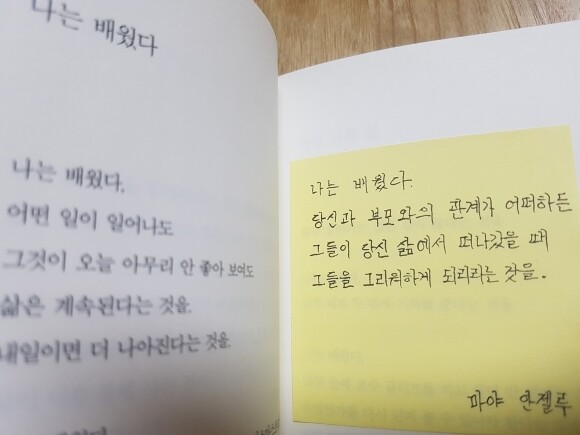 나는 배웠다
나는 배웠다.
어떤 일이 일어나도
그것이 오늘 아무리 안 좋아 보여도
삶은 계속된다는 것을.
내일이면 더 나아진다는 것을.
나는 배웠다.
당신과 부모와의 관계가 어떠하든
그들이 당신 삶에서 떠나갔을 때
그들을 그리워하게 되리라는 것을.
마야 안젤루